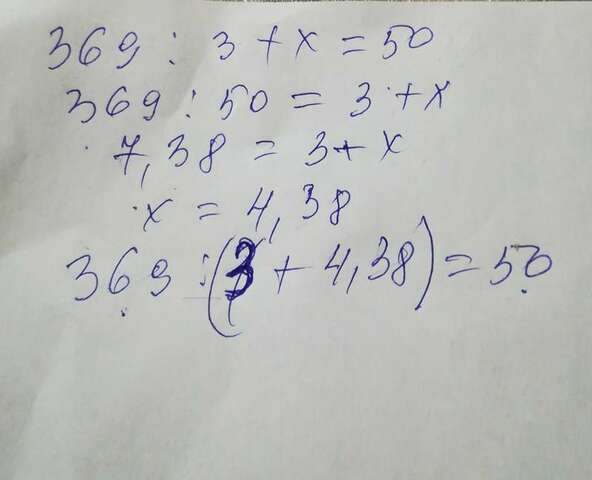 369 : 3 + x = 50
369 : 50 = 3 + x
7,38 = 3 + x
x = 4,38
369 : (3 + 4,38) = 50